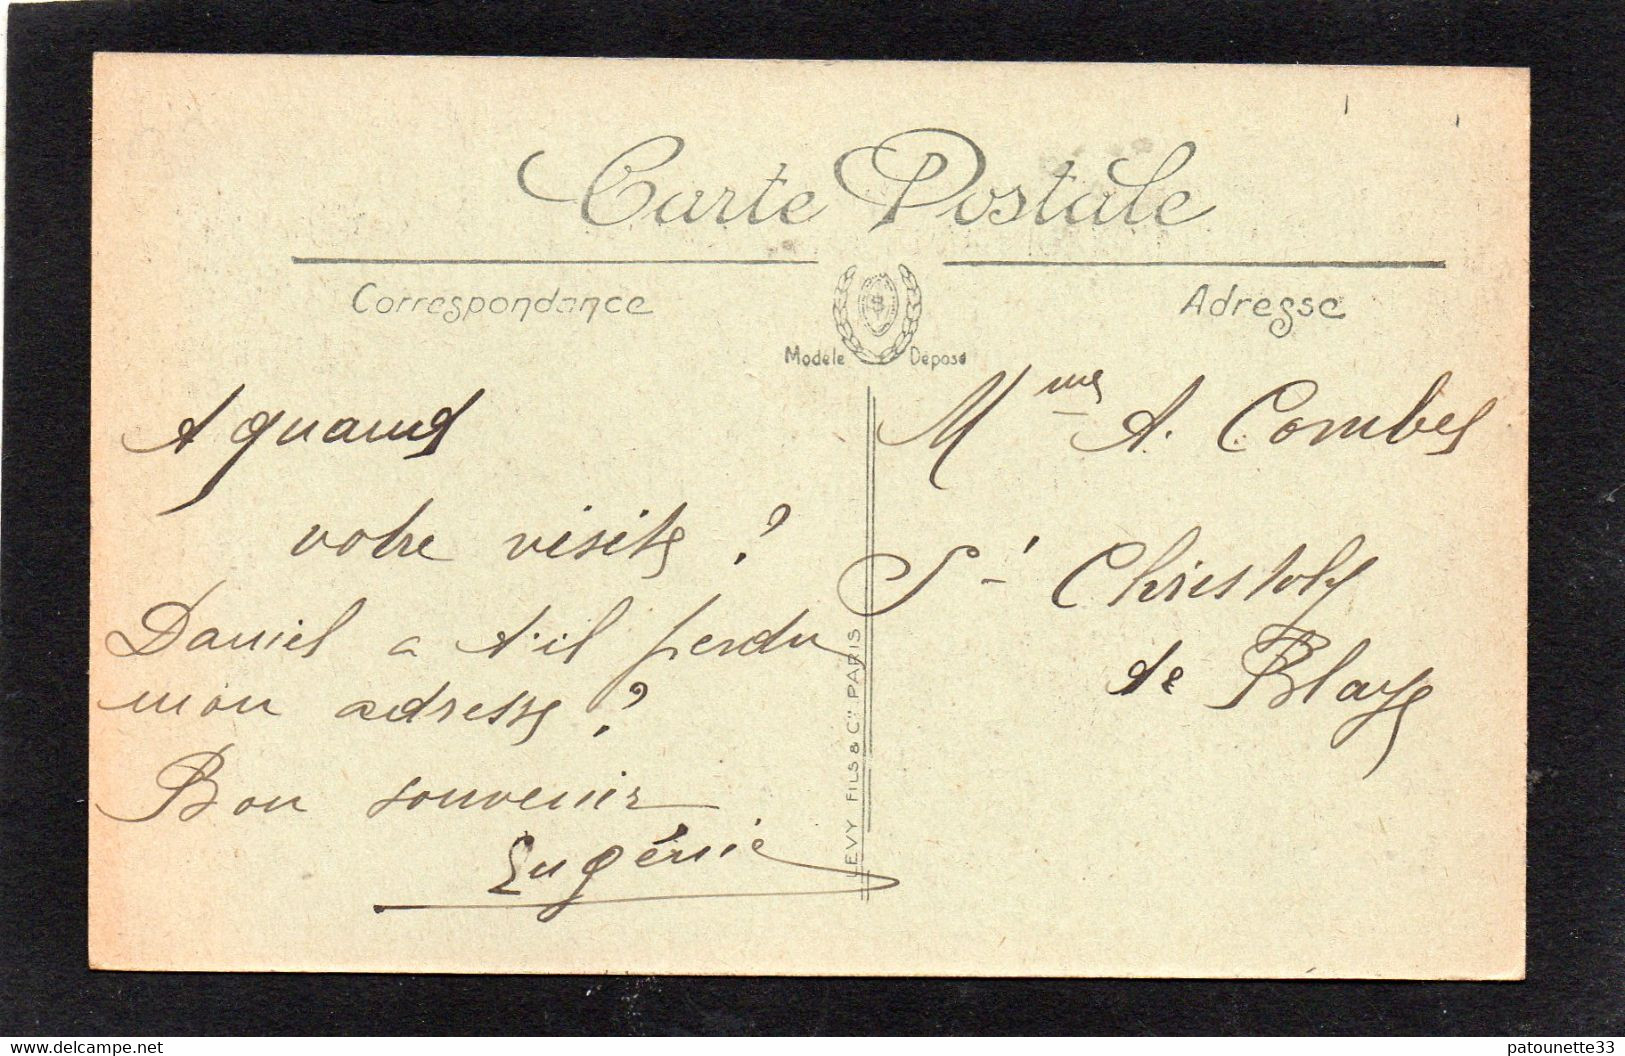 Carte Postale
Correspondance
Adresse
Modèle Déposé
A quand
votre visite ?
Daniel a t'il perdu
mon adresse ?
Bon souvenir
Eugénie
LEVY FILS & Cie PARIS
Mme A. Combes
St Christoly
de Blaye
delcampe.net
patounette33